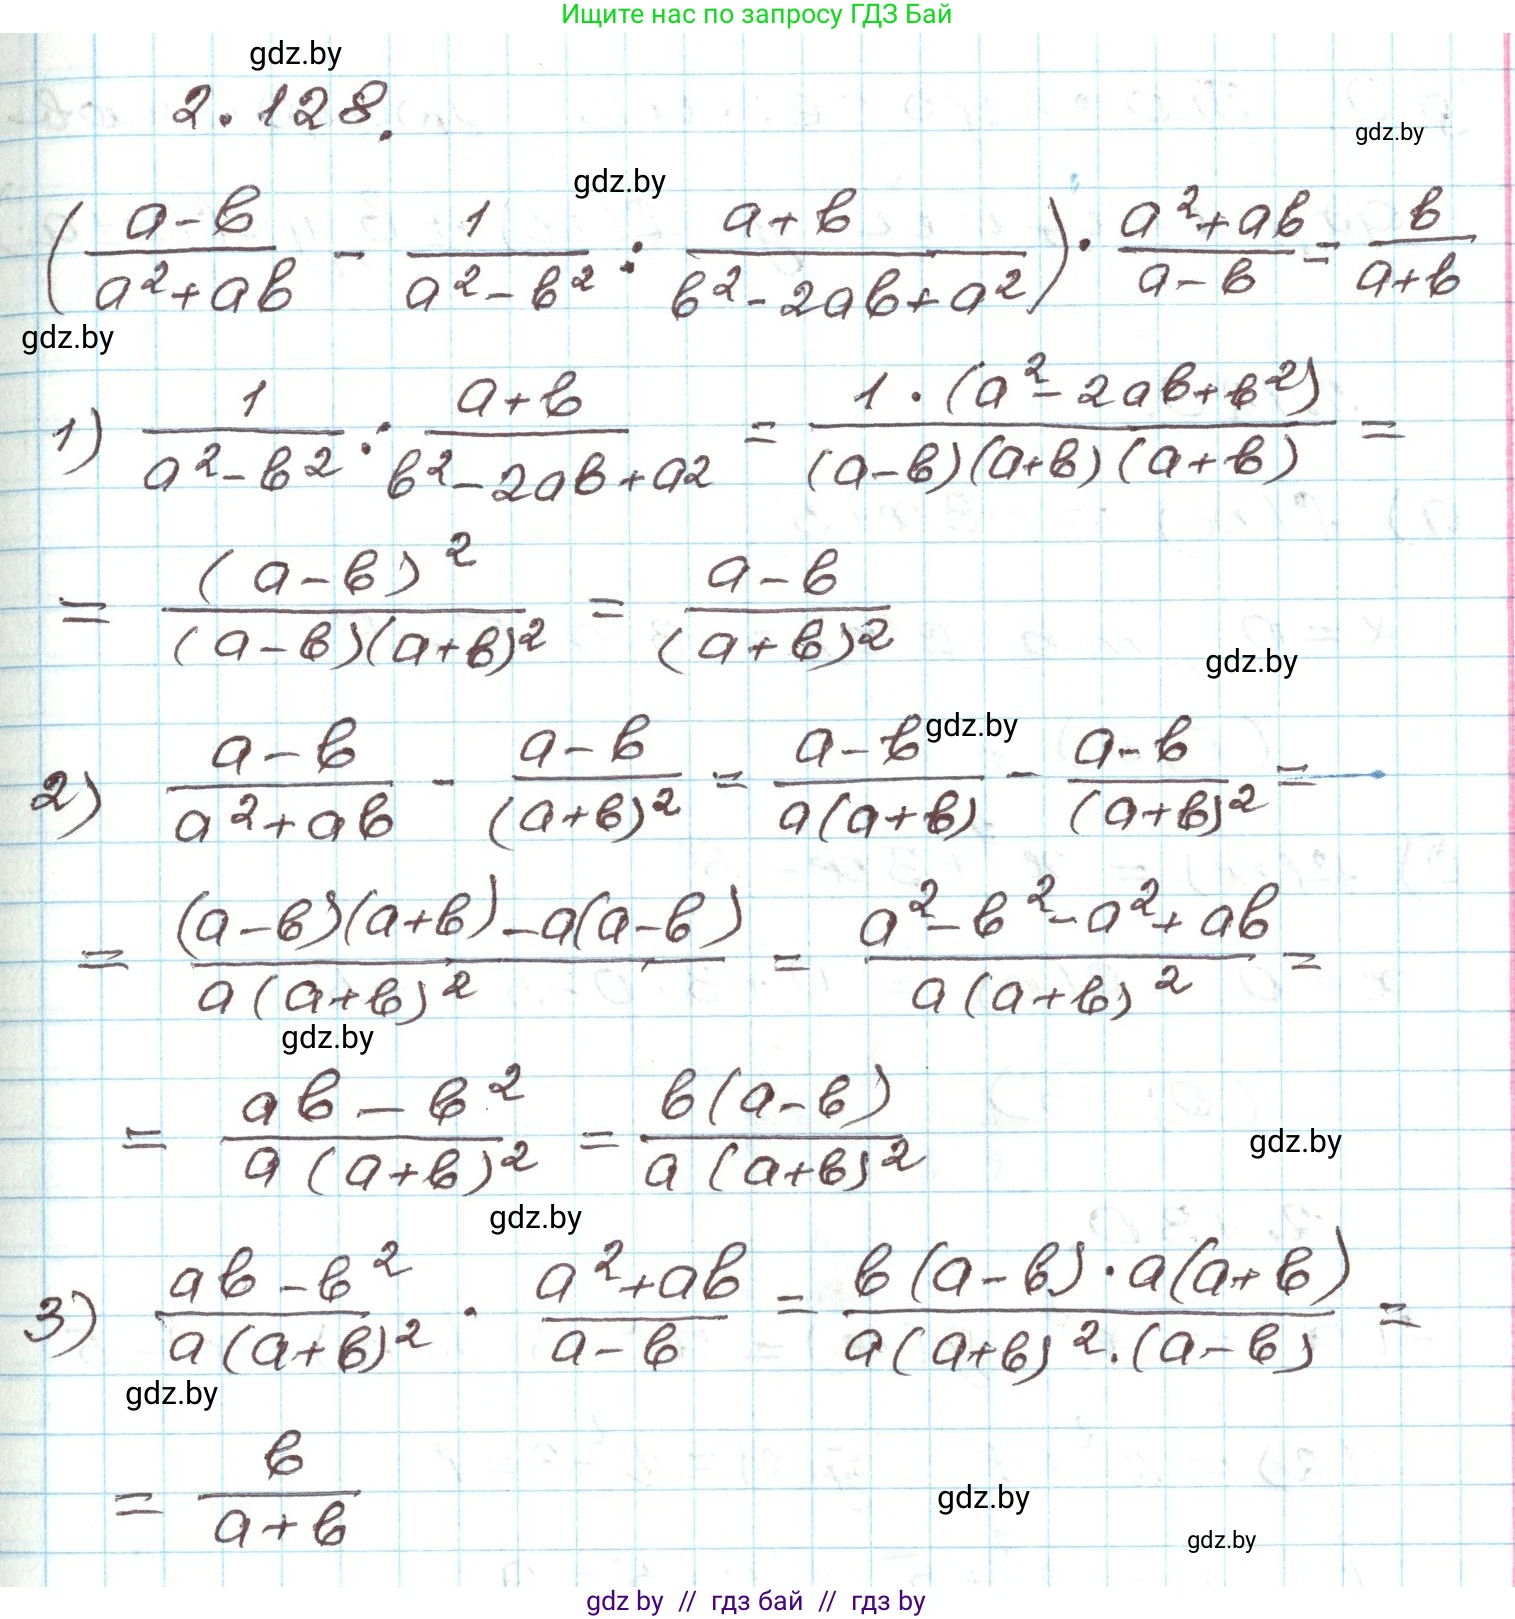 Ищите нас по запросу ГДЗ Бай
gdz.by
2.128.
gdz.by
gdz.by
(a-b/a²+ab - 1/a²-b² : a+b/b²-2ab+a²) · a²+ab/a-b = b/a+b
gdz.by
1) 1/a²-b² : a+b/b²-2ab+a² = 1·(a²-2ab+b²)/(a-b)(a+b)(a+b) =
= (a-b)²/(a-b)(a+b)² = a-b/(a+b)²
gdz.by
gdz.by
2) a-b/a²+ab - a-b/(a+b)² = a-b/a(a+b) - a-b/(a+b)² =
= (a-b)(a+b)-a(a-b)/a(a+b)² = a²-b²-a²+ab/a(a+b)² =
gdz.by
= ab-b²/a(a+b)² = b(a-b)/a(a+b)²
gdz.by
gdz.by
3) ab-b²/a(a+b)² · a²+ab/a-b = b(a-b)·a(a+b)/a(a+b)²·(a-b) =
gdz.by
= b/a+b
gdz.by
gdz.by
gdz by // гдз бай // гдз by